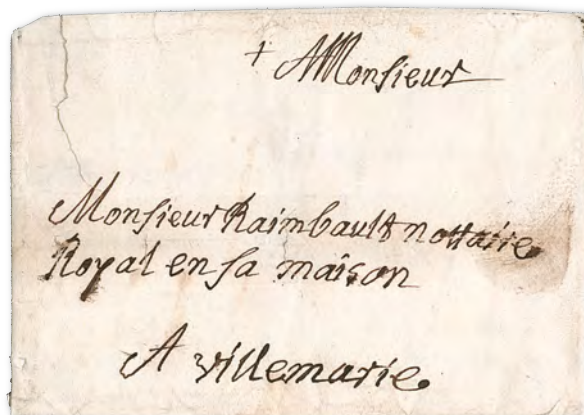 + A Monsieur
Monsieur Raimbault nottaire
Royal en sa maison
A villemarie